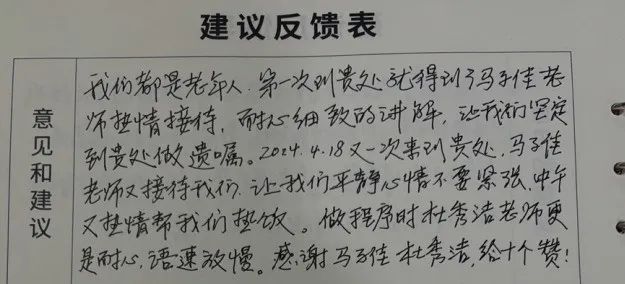 建议反馈表
意见和建议
我们都是老年人.第一次到贵处就得到了马子佳老
师热情接待,耐心细致的讲解,让我们坚定
到贵处做遗嘱。2024.4.18又一次来到贵处,马子佳
老师又接待我们.让我们平静心情不要紧张,中午
又热情帮我们热饭。做程序时杜秀洁老师更
是耐心,语速放慢。感谢马子佳杜秀洁,给十个赞!